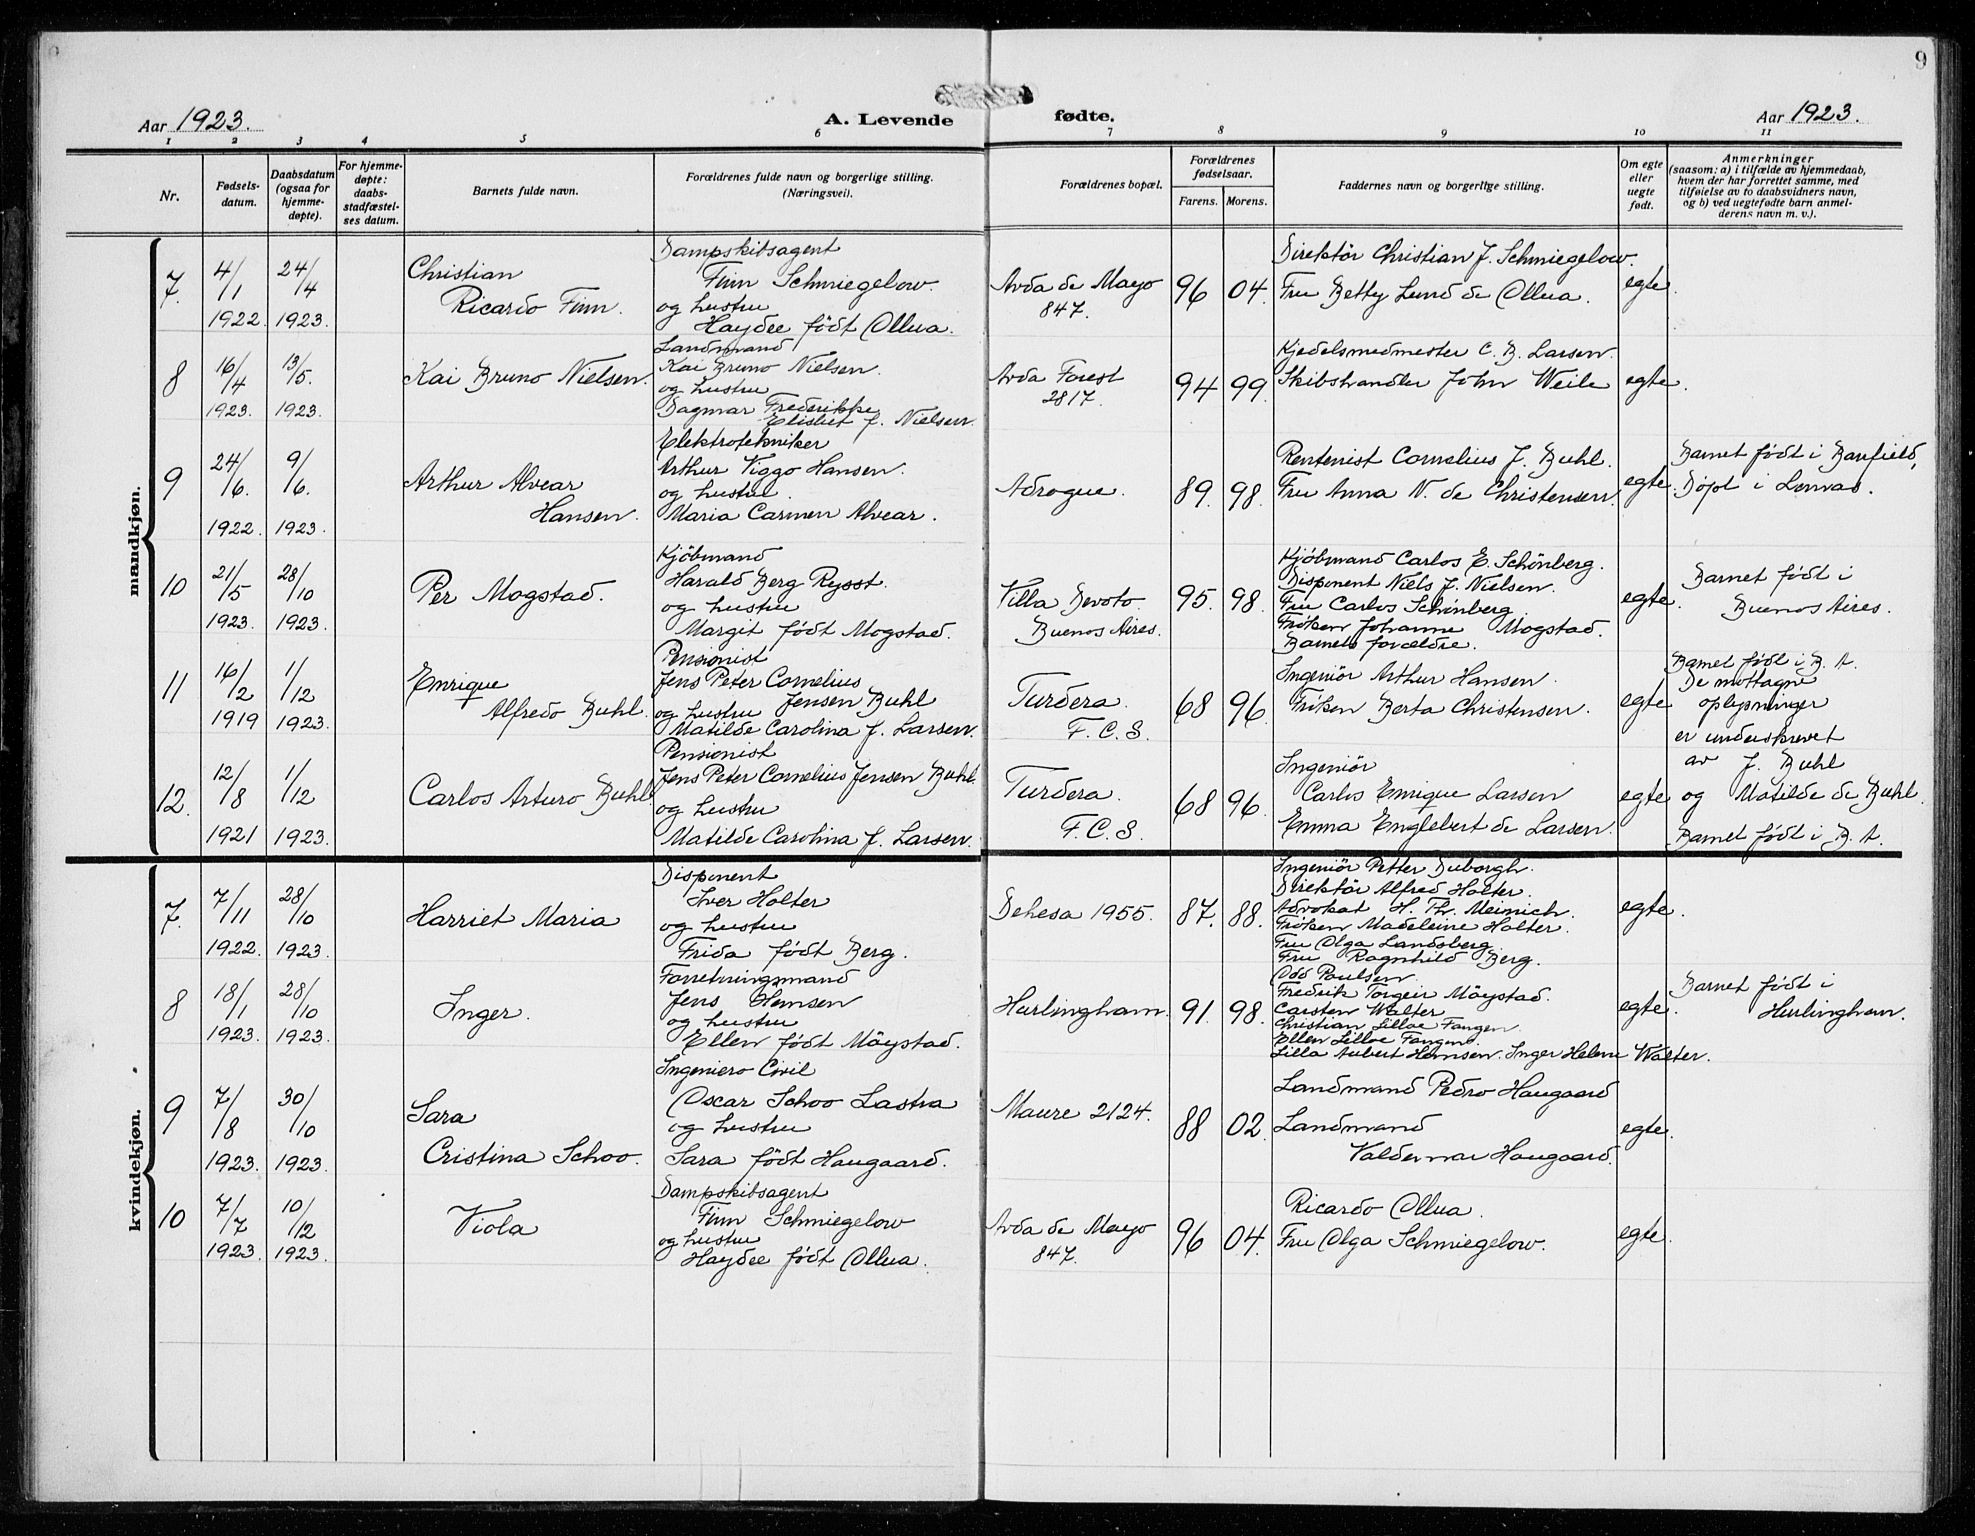 9
Aar 1923.
A. Levende fødte.
Aar 1923.
1 2 3 4 5 6 7 8 9 10 11
Nr.
Fødsels-
datum.
Daabsdatum
(ogsaa for
hjemme-
døpte).
For hjemme-
døpte:
daabs-
stadfæstel-
ses datum.
Barnets fulde navn.
Forældrenes fulde navn og borgerlige stilling.
(Næringsvei).
Forældrenes bopæl.
Forældrenes
fødselsaar.
Farens. Morens.
Faddernes navn og borgerlige stilling.
Om egte
eller
uegte
født.
Anmerkninger
(saasom: a) i tilfælde av hjemmedaab,
hvem der har forrettet samme, med
tilføielse av to daabsvidners navn,
og b) ved uegtefødte barn anmel-
derens navn m. v.).
mandkjøn.
7.
4/1
1922.
24/4
1923.
Christian
Ricardo Finn.
Dampskibsagent
Finn Schmiegelow.
og hustru
Haydee født Ollua.
Avda de Mayo
847.
96 04.
Direktør Christian J. Schmiegelow.
Fru Betty Lund de Ollua.
egte.
8
16/4
1923.
13/5.
1923.
Kai Bruno Nielsen.
Landmand
Kai Bruno Nielsen.
og hustru
Dagmar Frederikke
Elisbet f. Nielsen.
Avda Forest
2817.
94 99.
Kjedelsmedmester C. B. Larsen.
Skibshandler John Weile
egte.
9
24/6.
1922.
9/6.
1923.
Arthur Alvear
Hansen.
Elektrotekniker
Arthur Viggo Hansen.
og hustru.
Maria Carmen Alvear.
Adrogue.
89. 98.
Rentenist Cornelius J. Buhl.
Fru Anna N. de Christensen.
egte.
Barnet født i Banfield,
Døpt i Lomas.
10
21/5
1923.
28/10
1923.
Per Mogstad.
Kjøbmand
Harald Berg Rysst.
og hustru
Margit født Mogstad.
Villa Devoto.
Buenos Aires.
95. 98.
Kjøbmand Carlos E. Schönberg.
Disponent Niels J. Nielsen.
Fru Carlos Schönberg.
Frøken Johanne Mogstad.
Barnets forældre.
egte.
Barnet født i
Buenos Aires.
11
16/2
1919
1/12
1923.
Enrique
Alfredo Buhl.
Pensionist
Jens Peter Cornelius
Jensen Buhl
og hustru
Matilde Carolina f. Larsen.
Turdera.
F. C. S.
68 96.
Ingeniør Arthur Hansen.
Frøken Berta Christensen.
egte
Barnet født i B. A.
De mottagne
oplysninger
er underskrevet
av J. Buhl
og Matilde de Buhl.
12.
12/8
1921
1/12
1923.
Carlos Arturo Buhl
Pensionist
Jens Peter Cornelius Jensen Buhl.
og hustru
Matilde Carolina f. Larsen.
Turdera.
F. C. S.
68 96.
Ingeniør
Carlos Enrique Larsen
Emma Englebert de Larsen.
egte
Barnet født i B. A.
kvindekjøn.
7.
7/11
1922.
28/10
1923.
Harriet Maria
Disponent
Iver Holter
og hustru
Frida født Berg.
Dehesa 1955.
87. 88.
Ingeniør Petter Duborgh.
Direktør Alfred Holter.
Advokat H. Th. Meinich.
Frøken Madeleine Holter.
Fru Olga Landsberg.
Fru Ragnhild Berg.
egte.
8
18/1
1923.
28/10
1923.
Inger.
Forretningsmand
Jens Hemsen
og hustru
Ellen født Møystad.
Hurlingham.
91. 98.
Odd Paulsen.
Fredrik Torgeir Møystad.
Carsten Walter
Christian Lilloe Fangen.
Ellen Lilloe Fangen.
Lilla Aubert Hemsen. Inger Helene Walter.
egte.
Barnet født i
Hurlingham.
9
7/8
1923.
30/10
1923.
Sara
Cristina Schoo.
Ingeniero Civil
Oscar Schoo Lastra
og hustru
Sara født Haugaard.
Maure 2124.
88 02.
Landmand Pedro Haugaard
Landmand
Valdemar Haugaard.
egte.
10
7/7
1923.
10/12
1923.
Viola
Dampskibsagent
Finn Schmiegelow
og hustru
Haydee født Ollua.
Avda de Mayo
847.
96 04.
Ricardo Ollua.
Fru Olga Schmiegelow.
egte.